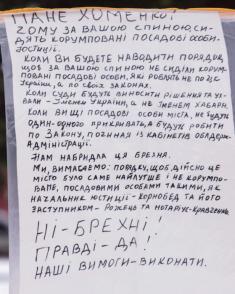 ПАНЕ ХОМЕНКО!
ЧОМУ ЗА ВАШОЮ СПИНОЮ СИ-
ДЯТЬ КОРУМПОВАНІ ПОСАДОВІ ОСОБИ-
ЮСТИЦІЇ.
КОЛИ ВИ БУДЕТЕ НАВОДИТИ ПОРЯДОК,
ЩОБ ЗА ВАШОЮ СПИНОЮ НЕ СИДІЛИ КОРУМ-
ПОВАНІ ПОСАДОВІ ОСОБИ, ЯКІ РОБЛЯТЬ НЕ ПО ЗУ
УКРАЇНИ, А ПО СВОЇХ ЗАКОНАХ.
КОЛИ СУДИ БУДУТЬ ВИНОСИТИ РІШЕННЯ ТА УХ-
ВАЛИ - ІМЕНЕМ УКРАЇНИ, А НЕ ІМЕНЕМ ХАБАРЯ.
КОЛИ ВИЩІ ПОСАДОВІ ОСОБИ МІСТА, НЕ БУДУТЬ
ОДИН-ОДНОГО ПРИКРИВАТЬ, А БУДУТЬ РОБИТИ
ПО ЗАКОНУ, ПОЧИНАЯ ІЗ КАБІНЕТІВ ОБЛДЕРЖ-
АДМІНІСТРАЦІЇ.
НАМ НАБРИДЛА ЦЯ БРЕХНЯ.
МИ, ВИМАГАЄМО: ПОРЯДКУ, ЩОБ ДІЙСНО ЦЕ
МІСТО БУЛО САМЕ НАЙЛУТШЕ І НЕ КОРУМПО-
ВАНЕ, ПОСАДОВИМИ ОСОБАМИ ТАКИМИ, ЯК
НАЧАЛЬНИК ЮСТИЦІЇ - КОРНОБЕД ТА ЙОГО
ЗАСТУПНИКОМ - РОЖЕЦЬ ТА НОТАРІУС - КРАВЧЕНКО.
НІ - БРЕХНІ!
ПРАВДІ - ДА!
НАШІ ВИМОГИ - ВИКОНАТИ.